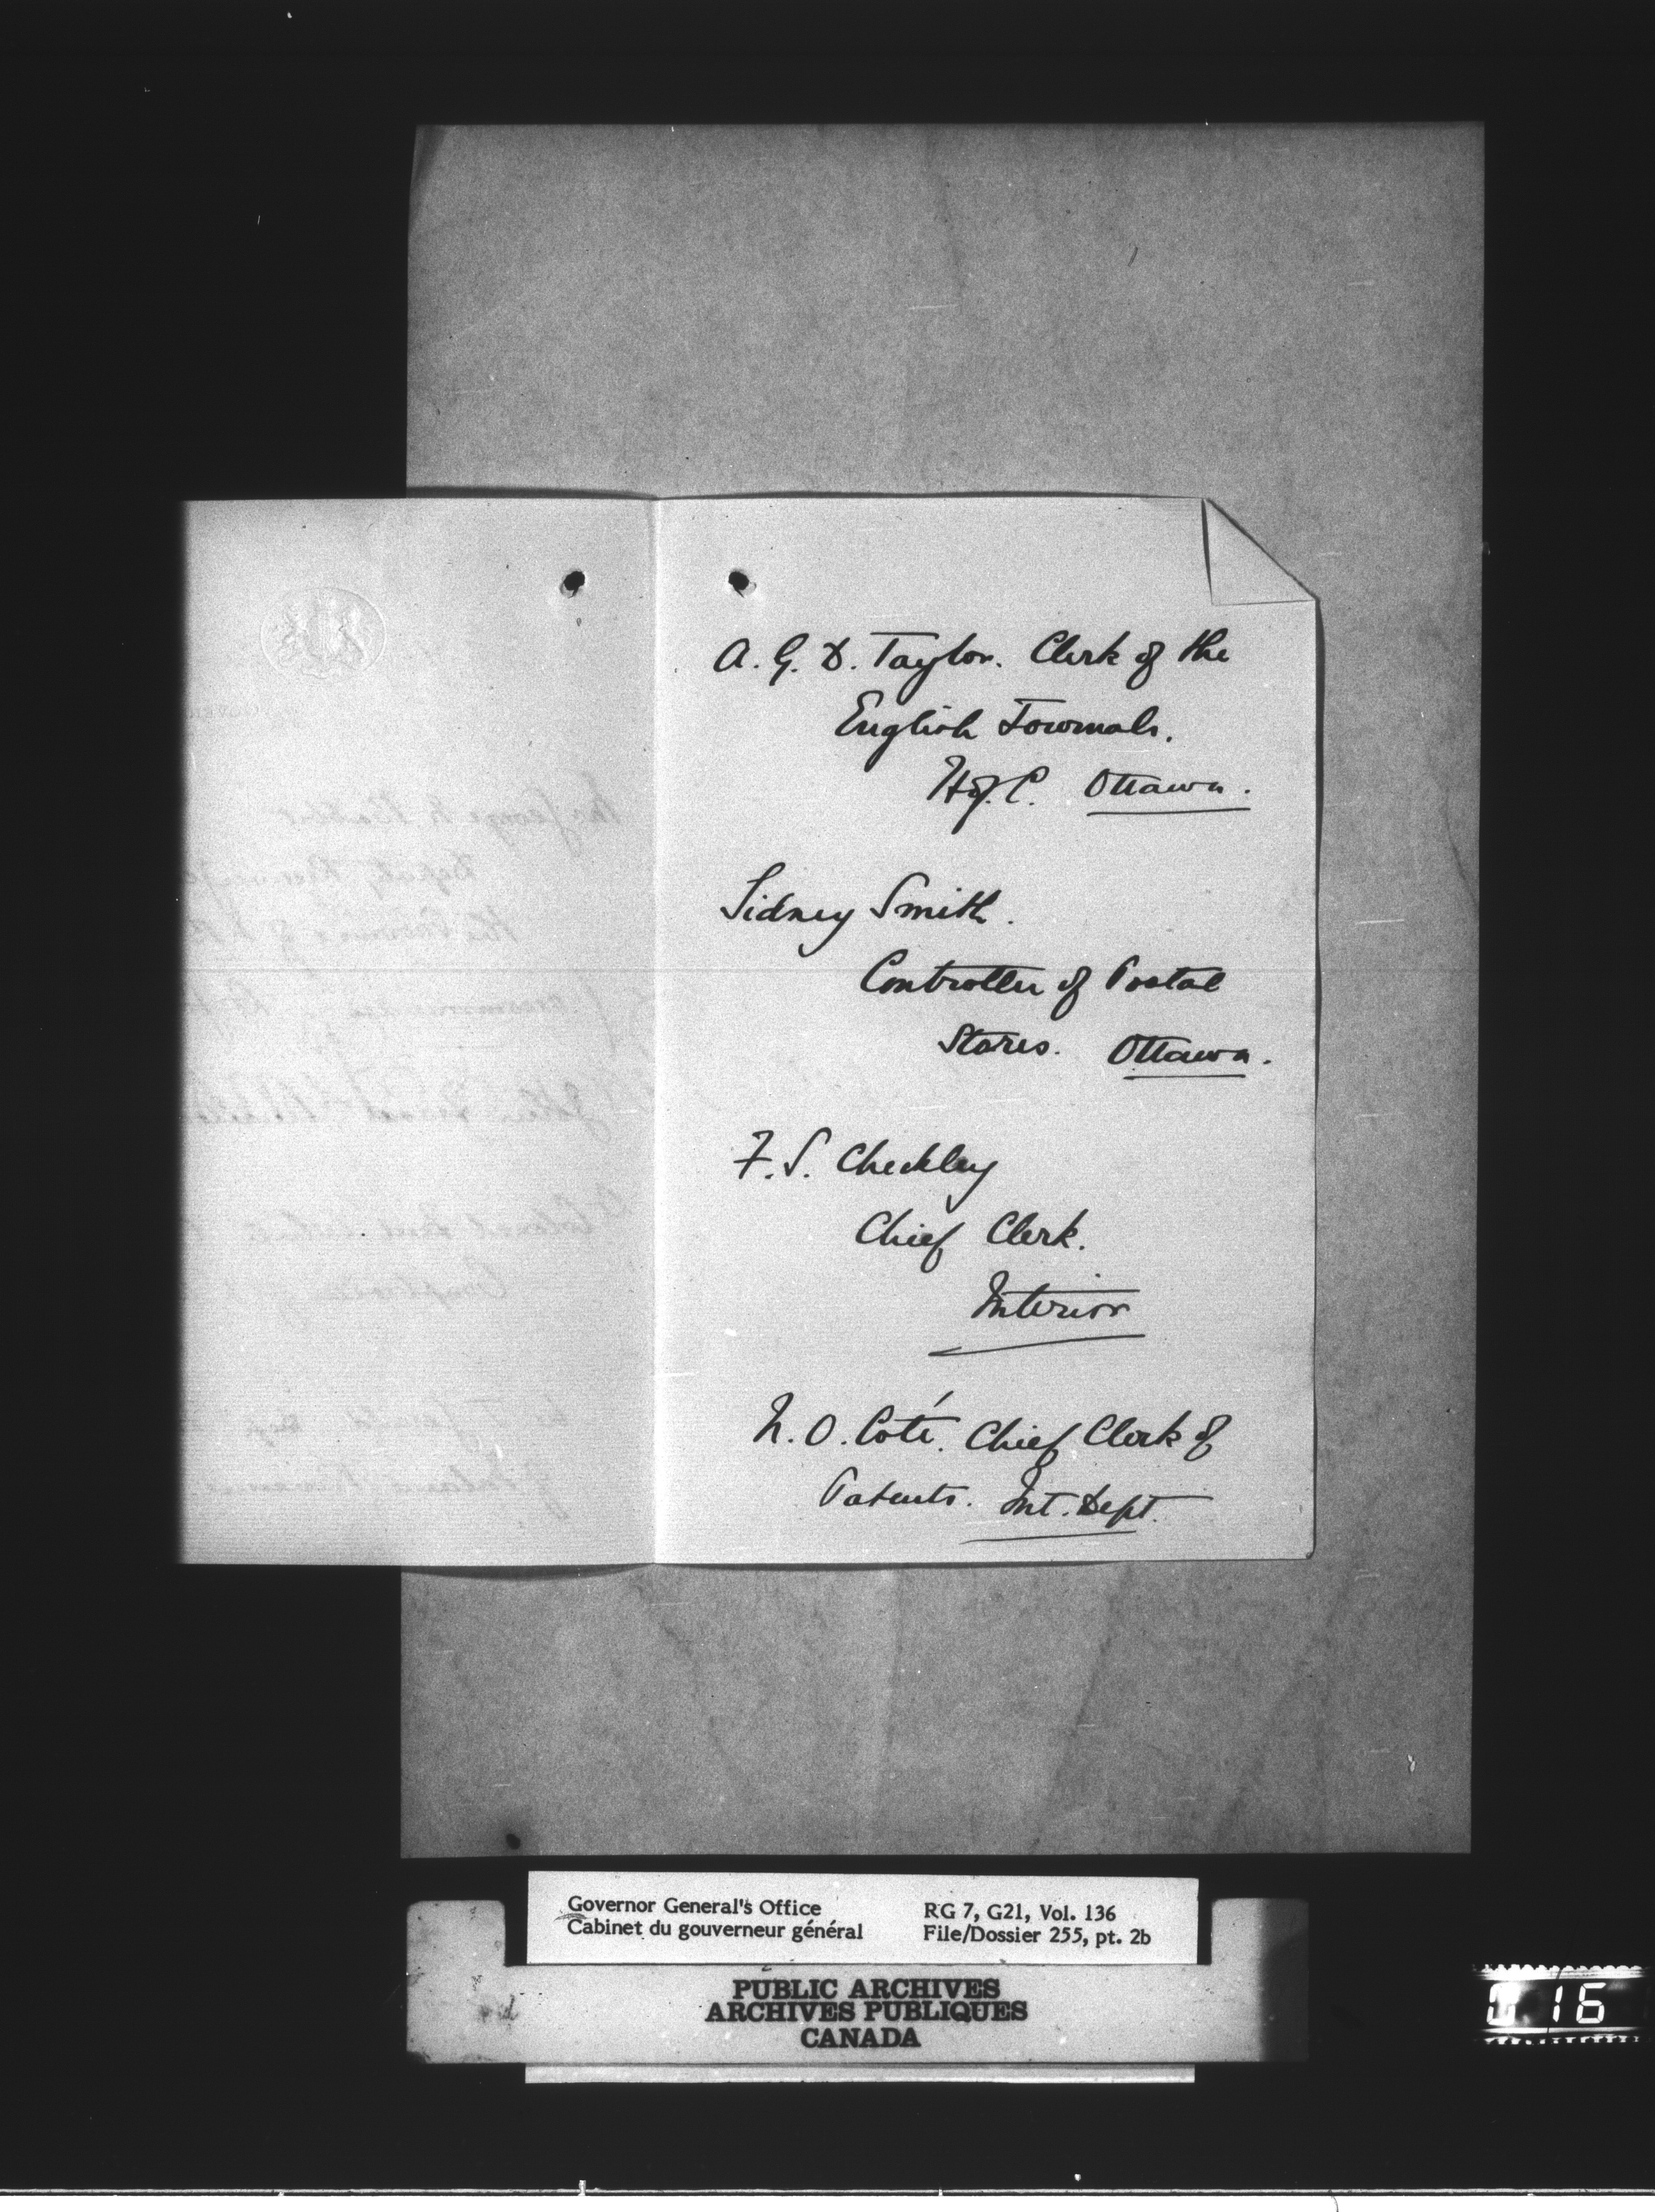 A. G. D. Taylor. Clerk of the
English Journals.
H of. C. Ottawa.
Sidney Smith.
Controller of Postal
Stores. Ottawa.
F. S. Checkley
Chief Clerk.
Interior
N. O. Coté. Chief Clerk of
Patents. Int. Dept.
Governor General's Office
Cabinet du gouverneur général
RG 7, G21, Vol. 136
File/Dossier 255, pt. 2b
PUBLIC ARCHIVES
ARCHIVES PUBLIQUES
CANADA
16